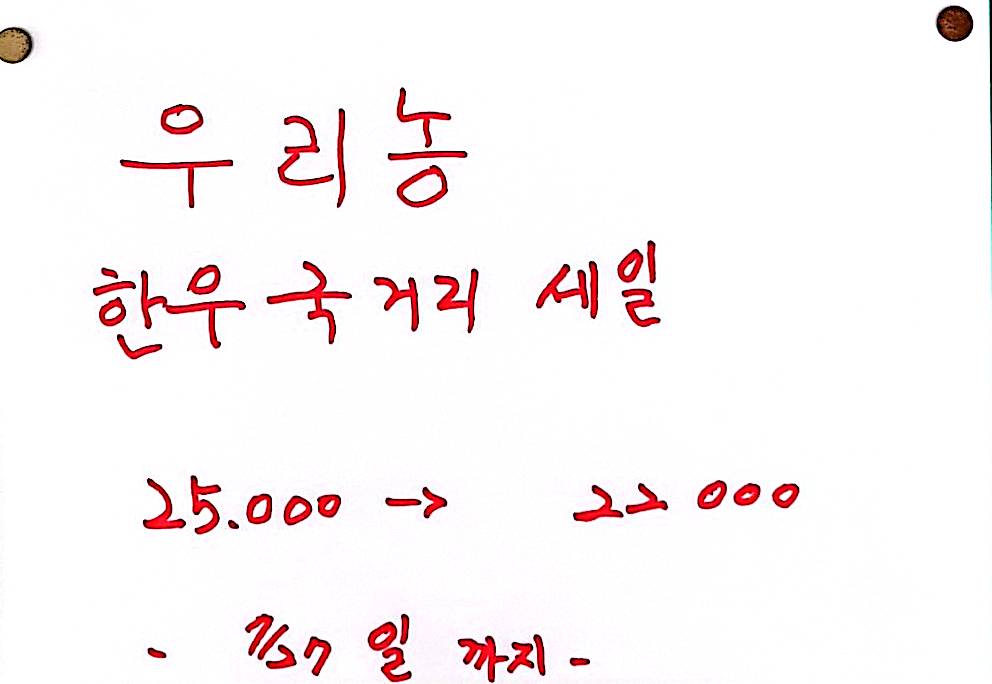 우리농
한우국거리 세일
25.000 → 22 000
- 7/27일 까지 -